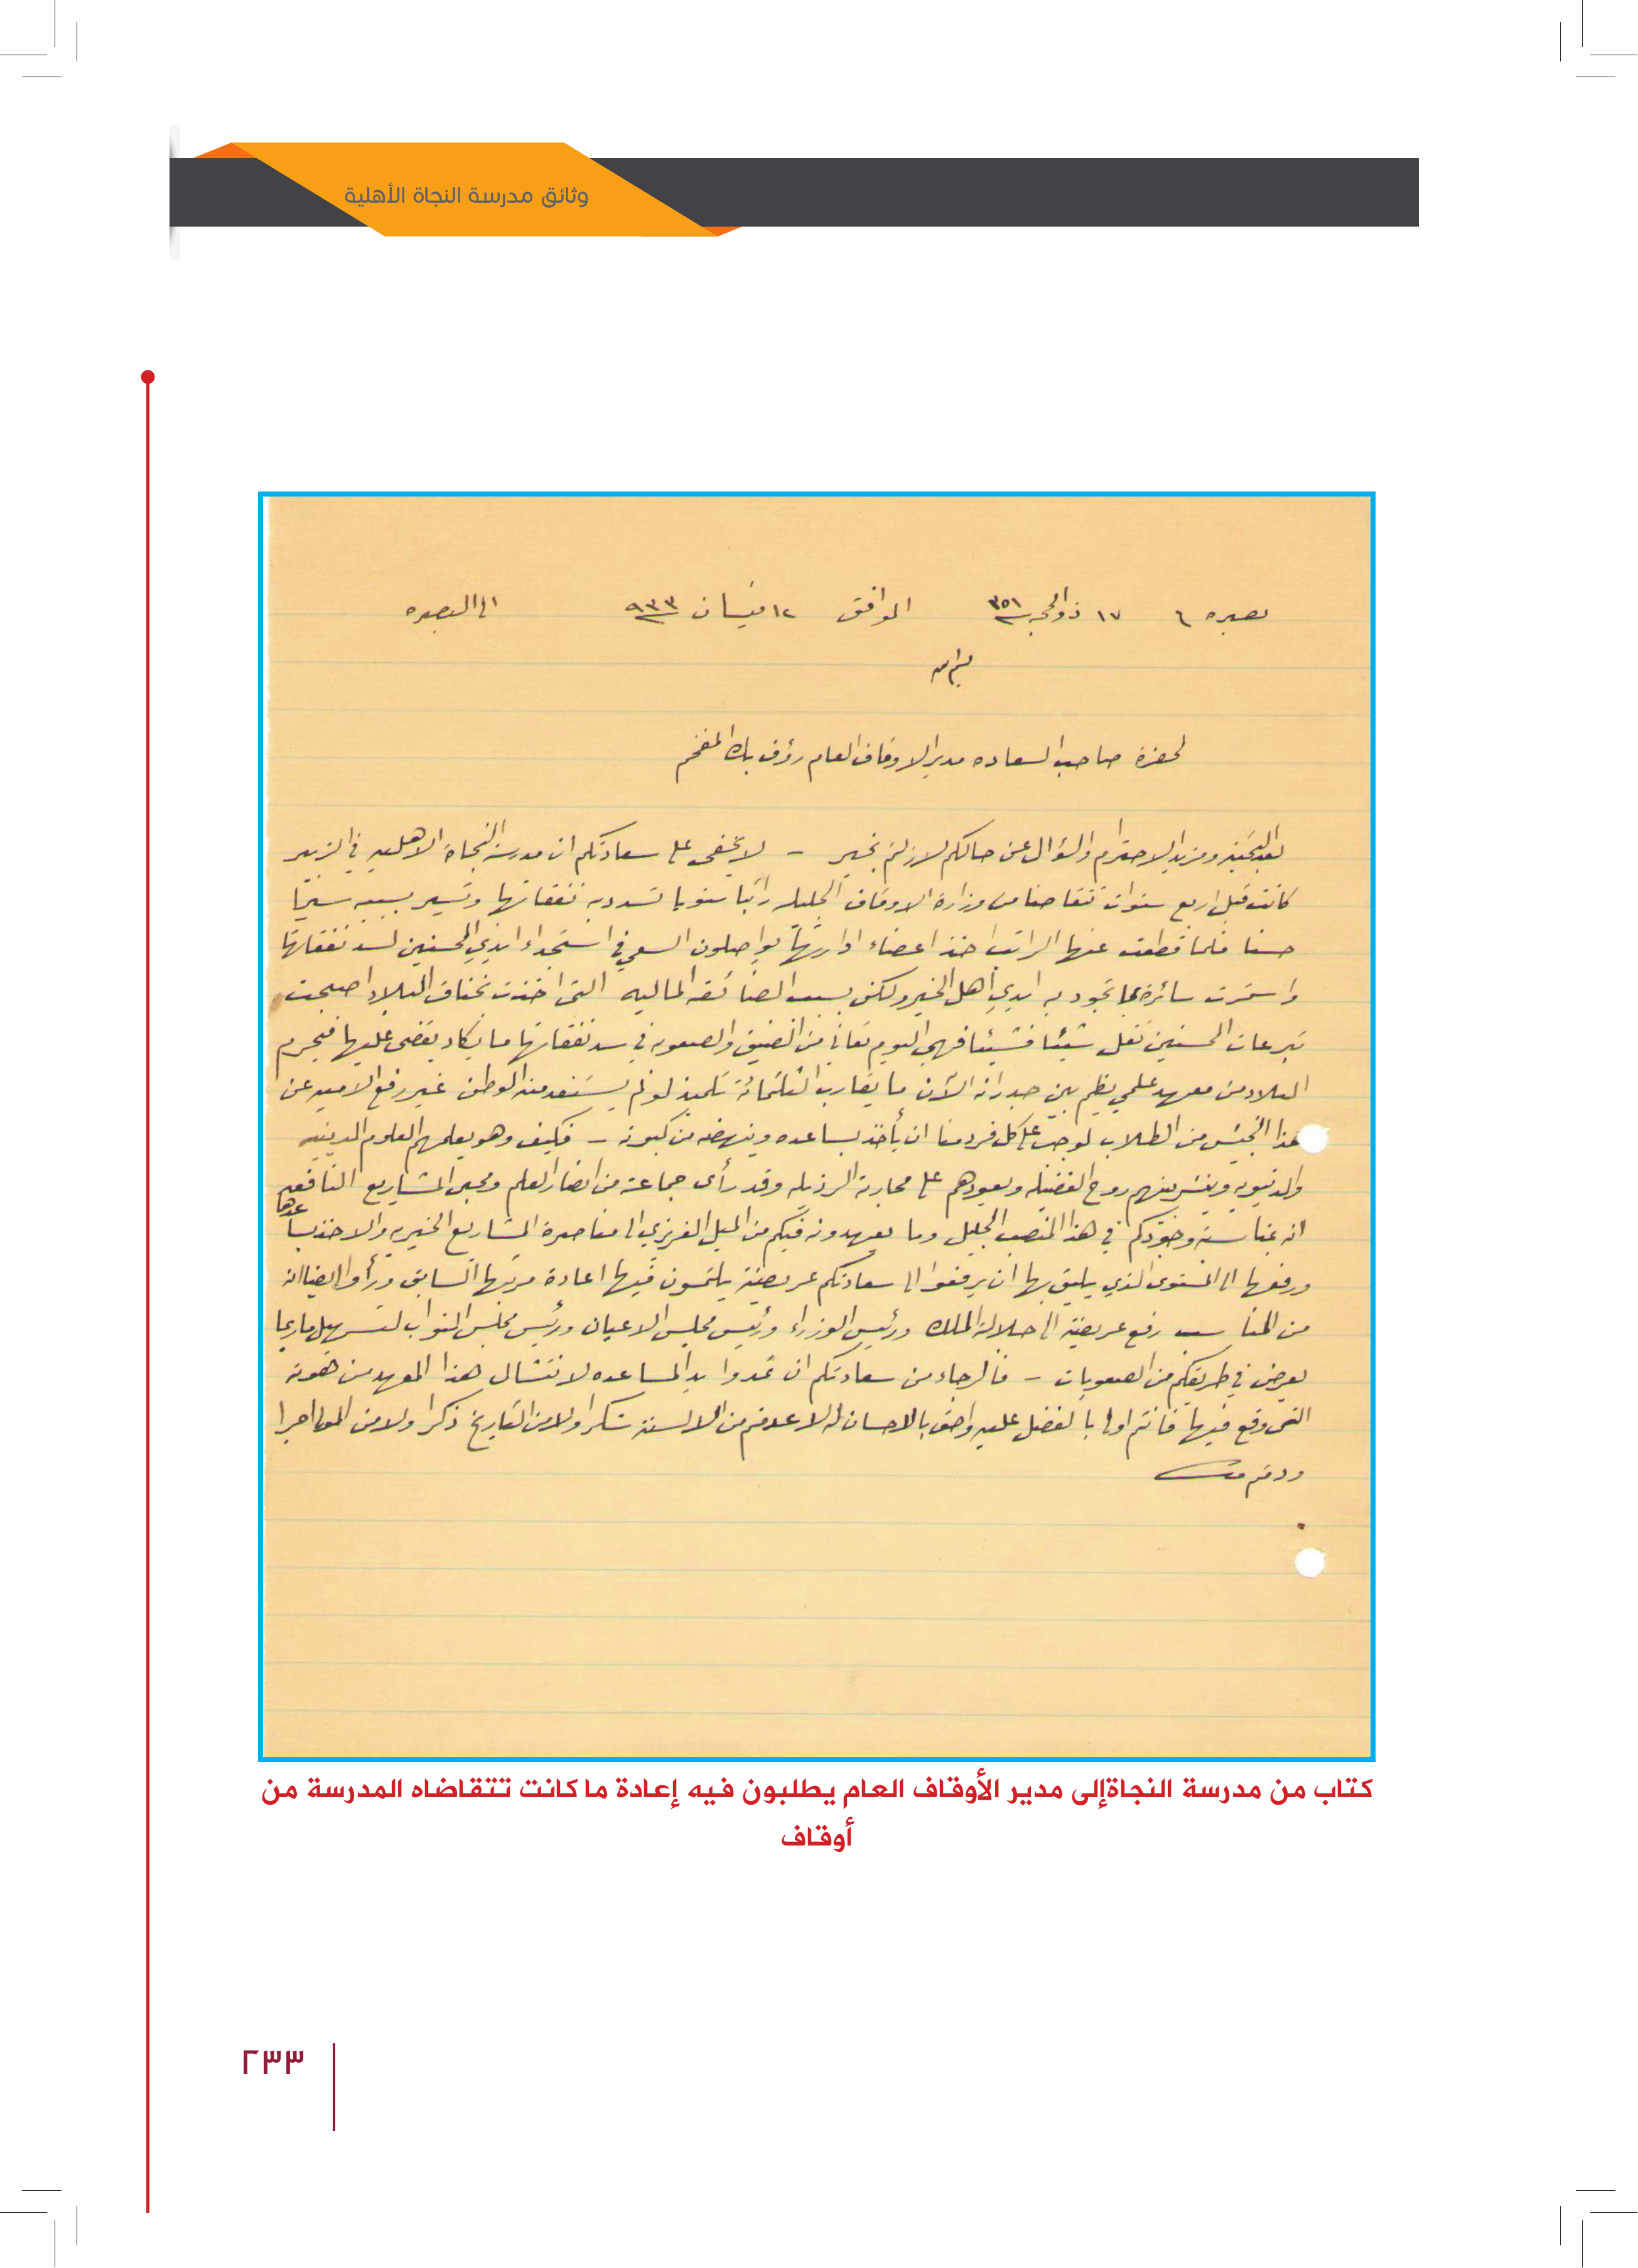 وثائق مدرسة النجاة الأهلية
بصره ٦ ١٧ ذو الحجه ٣٥١ الموافق ١٢ نيسان ٩٣٣ الى البصره
لحضرة صاحب السعاده مدير الاوقاف العام رؤف بك المفخم
بعد التحيه ومزيد الاحترام والسؤال عن حالكم لازلتم بخير – لا يخفى على سعادتكم ان مدرسة النجاة الاهليه في الزبير
كانت قبل اربع سنوات تتقاضا من وزارة الاوقاف الجليله راتبا سنويا تسدد به نفقاتها وتسير بسببه سيرا
حسنا فلما قطعت عنها الراتب اخذ اعضاء ادارتها يواصلون السعي في استجداء ايدي المحسنين لسد نفقاتها
واستمرت سائرة بما تجود به ايدي اهل الخير ولكن بسبب الضائقه الماليه التي اخذت بخناق البلاد اصبحت
تبرعات المحسنين تقل شيئا فشيئا فهي اليوم تعاني من الضيق والصعوبه في سد نفقاتها ما يكاد يقضى عليها فيحرم
البلاد من معهد علمي يظم بين جدرانه الآن ما يقارب الثلثمائة تلميذ لو لم يستفد منه الوطن غير رفع الاميه عن
هذا الجيش من الطلاب لوجب على كل فرد منا ان يأخذ بساعده وينهضه من كبوته – فكيف وهو يعلمهم العلوم الدينيه
والدنيويه وينشر بينهم روح الفضيله ويعودهم على محاربة الرذيله وقد رأى جماعة من انصار العلم ومحبى المشاريع النافعه
انه بمناسبة وجودكم في هذا المنصب الجليل وما يعهدونه فيكم من الميل الغريزي الى مناصرة المشاريع الخيريه والاخذ بساعدها
ورفعها الى المستوى الذي يليق بها ان يرفعوا الى سعادتكم عريضة يلتمسون فيها اعادة مرتبها السابق ورأوا ايضا انه
من المناسب رفع عريضة الى جلالة الملك ورئيس الوزراء ورئيس مجلس الاعيان ورئيس مجلس النواب لتسهيل ما ربما
يعرض في طريقكم من الصعوبات – فالرجاء من سعادتكم ان تمدوا يد المساعده لانتشال هذا المعهد من هوته
التي وقع فيها فانتم اولى بالفضل عليه واحق بالاحسان له لاعدمتم من الالسنة شكرا ولا من التاريخ ذكرا ولا من المولى اجرا
ودمتم
كتاب من مدرسة النجاةإلى مدير الأوقاف العام يطلبون فيه إعادة ما كانت تتقاضاه المدرسة من
أوقاف
٢٣٣